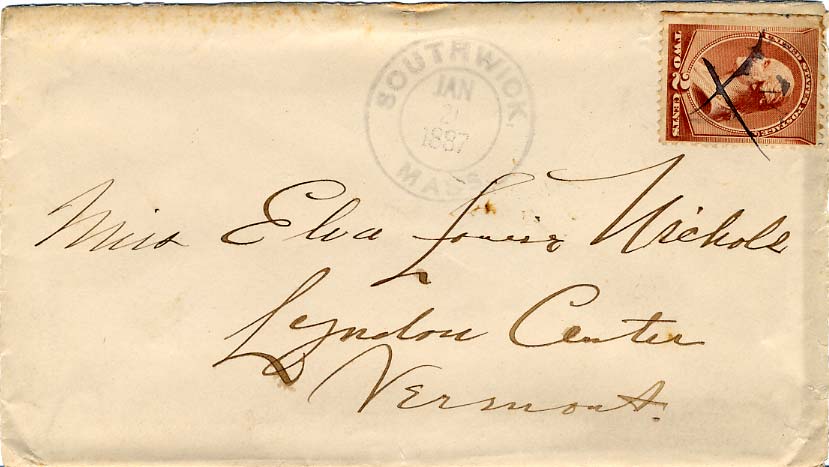 SOUTHWICK,
JAN
1887
MASS.
UNITED STATES POSTAGE
TWO 2 CENTS
Miss Elva Louise Nichols
Lyndon Center
Vermont.